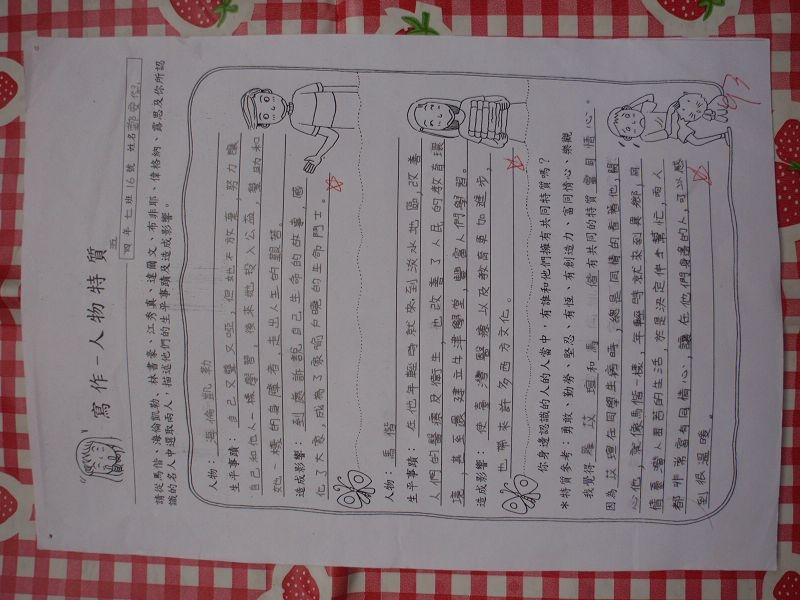 寫作－人物特質
五
四年七班16號 姓名
請從馬偕、海倫凱勒、林書豪、江秀真、達爾文、布非耶、偉格納、露思及你所認
識的名人中選取兩人，描述他們的生平事蹟及造成影響。
人物：海倫凱勒
生平事蹟：自己又聾又啞，但她不放棄，努力讓
自己和他人一樣學習，後來她投入公益，幫助和
她一樣的身障者，走出人生的艱苦。
造成影響：到處訴說自己生命的故事，感
化了大家，成為了家喻戶曉的生命鬥士。
人物：馬偕
生平事蹟：在他年輕時就來到淡水地區，改善
人們的醫療及衛生，也改善了人民的教育環
境，甚至還建立牛津學堂，豐富人們學習。
造成影響：使臺灣醫療以及教育更加進步，
也帶來許多西方文化。
你身邊認識的人的人當中，有誰和他們擁有共同特質嗎？
*特質參考：勇敢、勤勞、堅忍、有恆、有創造力、富同情心、樂觀
我覺得羅苡瑄和馬偕有共同的特質富同情心。
因為苡瑄在同學生病時，總是同情的看著他，關
心他，就像馬偕一樣，年輕時就來到異鄉，同
情臺灣人困苦的生活，於是決定伸出幫忙，兩人
都非常富有同情心，讓在他們身邊的人，可以感
到很溫暖。
93